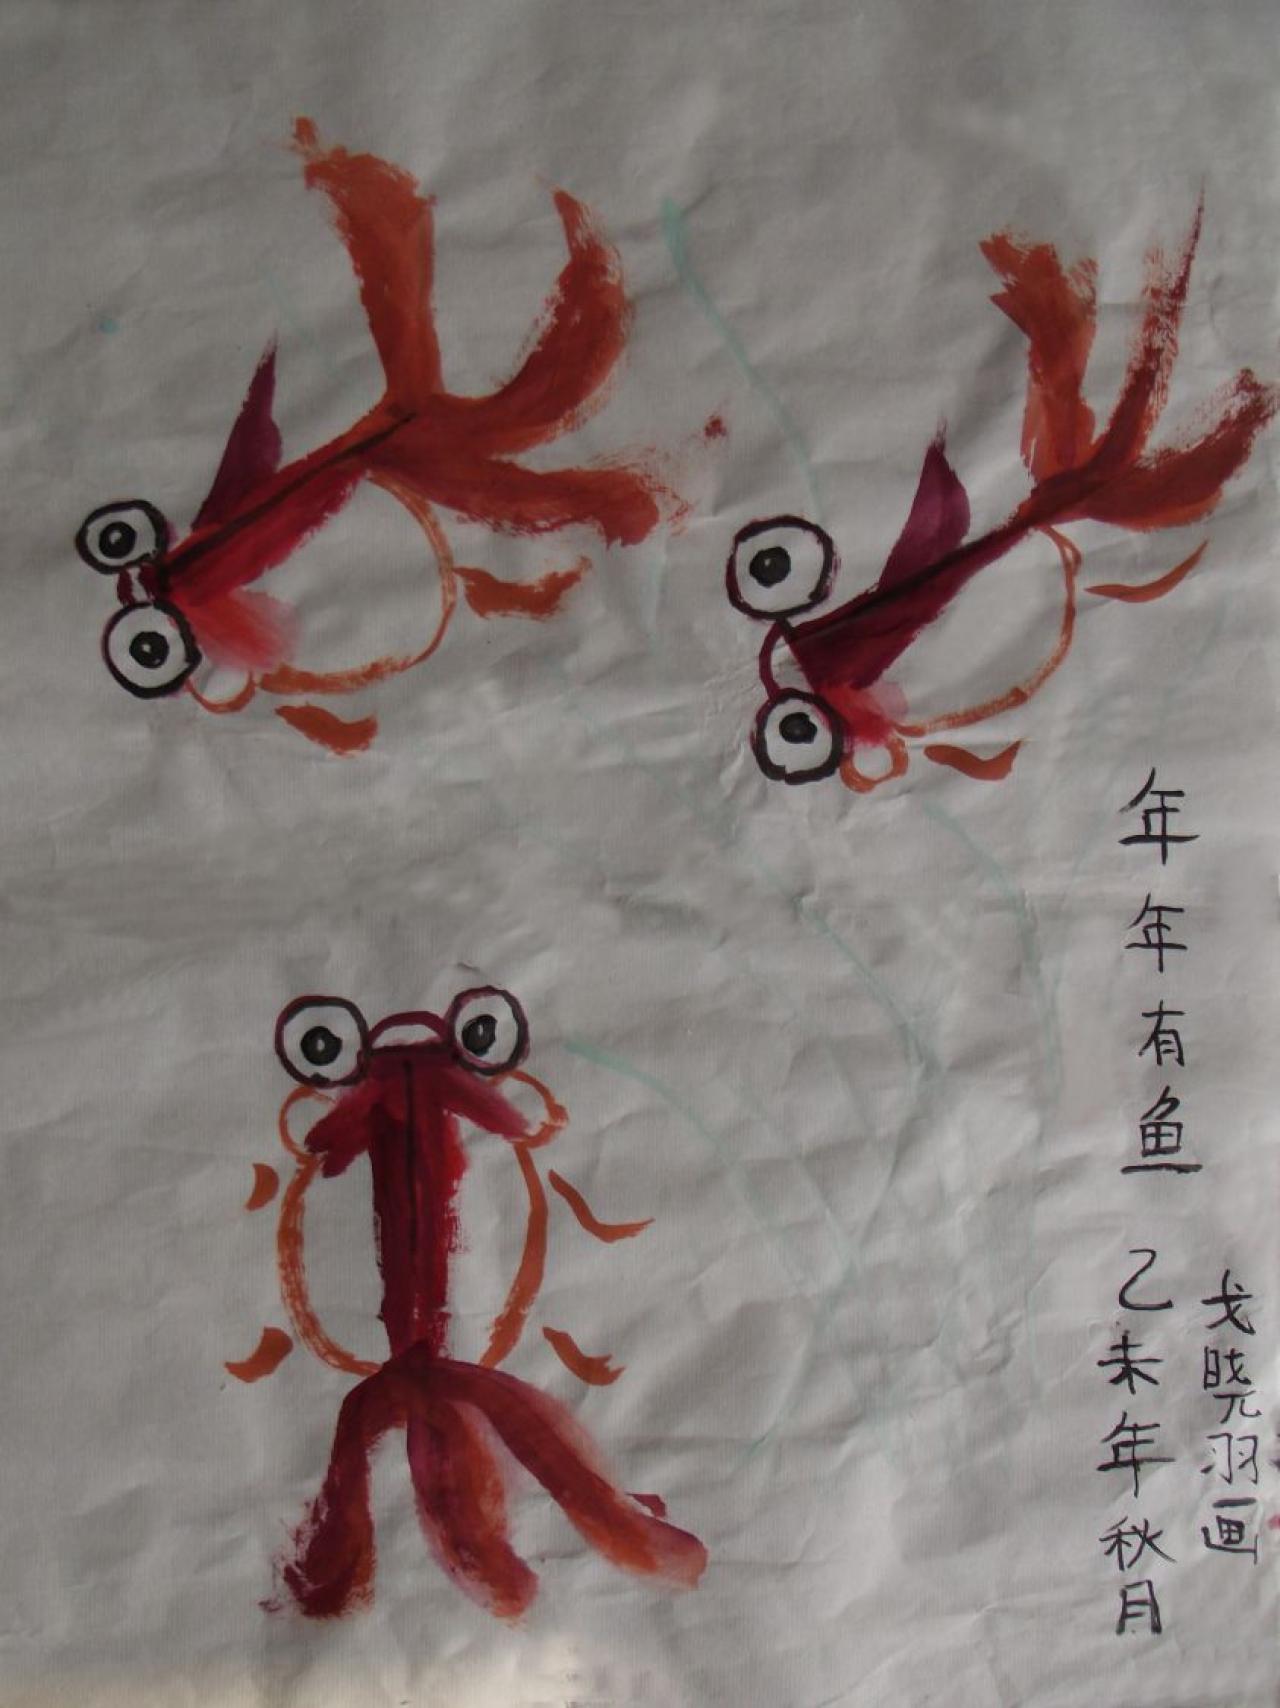 年年有鱼
乙未年秋月
戈晓羽画